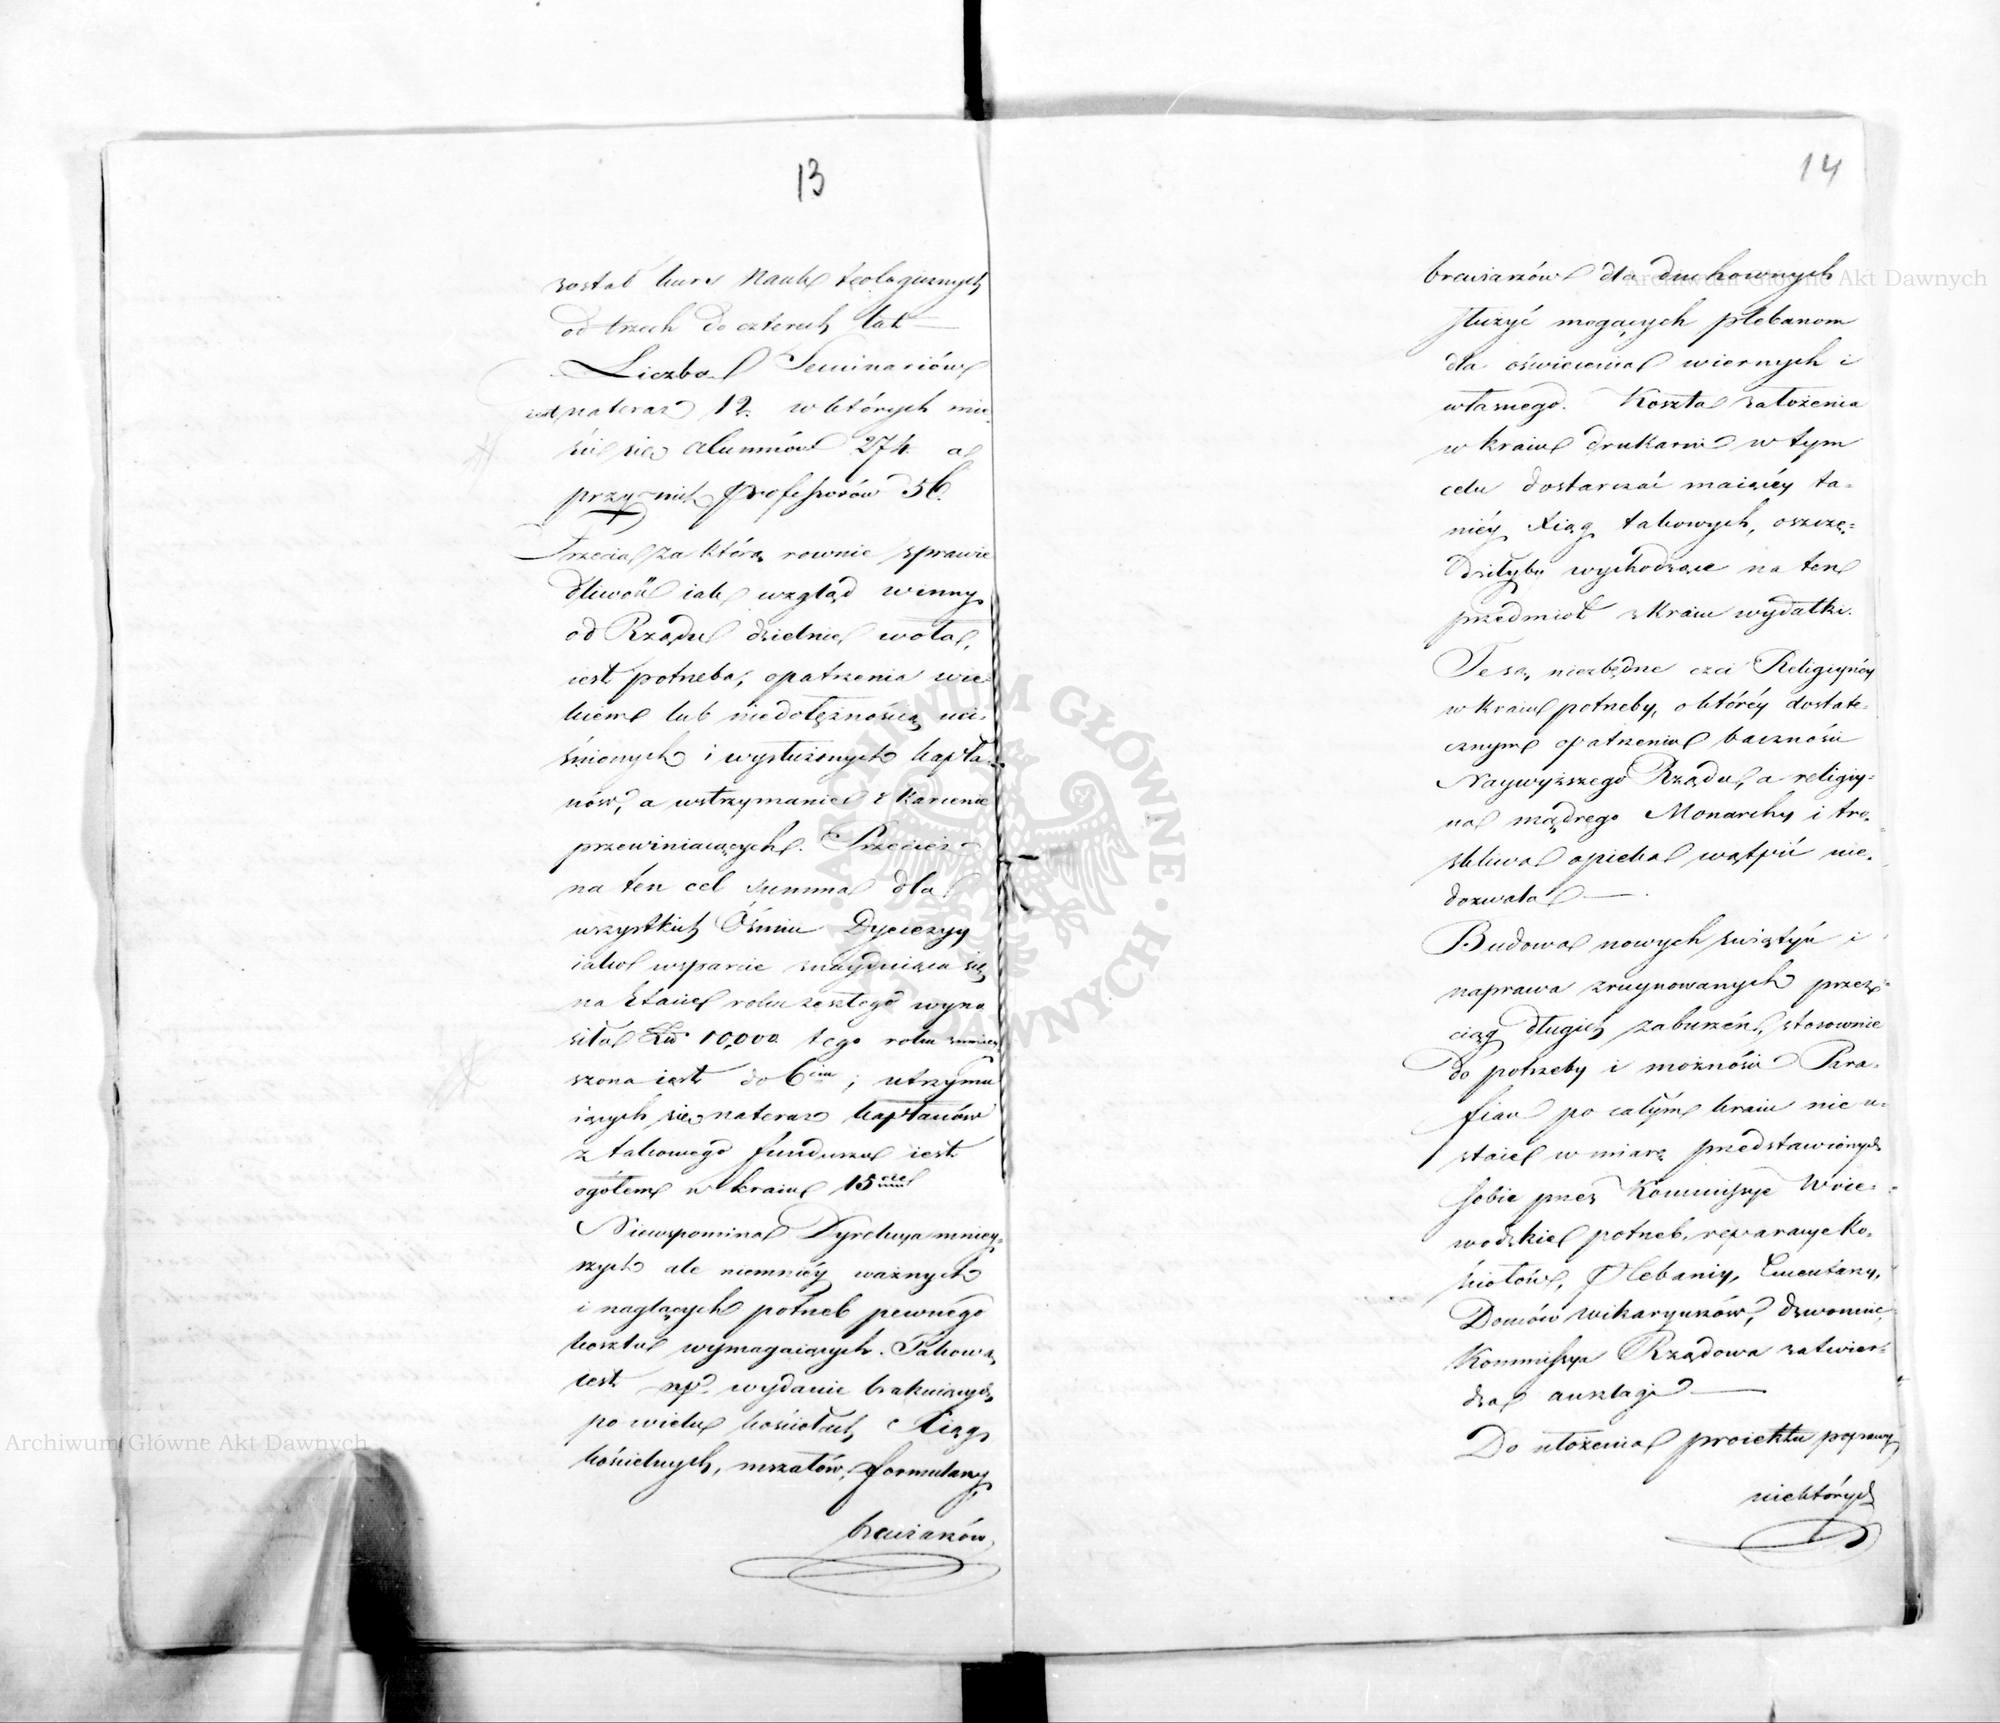 13
został kurs Nauk teologicznych
od trzech do czterech lat —
Liczba Seminariów
iest nateraz 12. w których mie-
ści się alumnów 274 a
przy nich Professorów 56.
Trzecia za którą rownie sprawie
dliwość iak wzgląd winny
od Rządu dzielnie woła,
iest potrzeba, opatrzenia wie-
kiem lub niedołężnością uci-
śnionych i wysłużonych kapła-
nów, a wstrzymanie i karcenie
przewiniaiących. Przecież
na ten cel summa dla
wszystkich Ośmiu Dyecezyy
iako wsparcie znayduiąca się
na Etacie roku zeszłego wyno
siła 10,000 tego roku zmniey
szona iest do 6ciu; utrzymu
iących się nateraz kapłanów
z takowego funduszu iest
ogółem w kraiu 15
Niewspomina Dyrekcya mniey-
szych ale niemniéy ważnych
i naglących potrzeb pewnego
kosztu wymagaiących. Takową
iest np. wydanie brakuiących
po wielu kościołach Xiąg
kościelnych, mszałów, formularzy
brewiarzów
14
brewiarzów dla duchownych
służyć mogących plebanom
dla oświecenia wiernych i
własnego. Koszta założenia
w kraiu drukarni w tym
celu dostarczać maiącéy ta-
niéy Xiąg takowych, oszczę-
dziłyby wychodzące na ten
przedmiot z kraiu wydatki.
Te są niezbędne czci Religiynéy
w kraiu potrzeby, o któréy dostate-
cznym opatrzeniu baczność
Naywyższego Rządu, a religiy-
na mądrego Monarchy i tro-
skliwa opieka wątpić nie-
dozwala —
Budowa nowych świątyń i
naprawa zruynowanych przez
ciąg długich zaburzeń, stosownie
do potrzeby i możności Para-
fian po całym kraiu nie u-
staie w miarę przedstawionych
sobie przez Kommissye Woie-
wodzkie potrzeb, reparacye Ko-
ściołów, Plebaniy, Cmentarzy,
Domów wikaryuszów, dzwonnic,
Kommissya Rządowa zatwier-
dza anszlagi —
Do ułożenia proiektu poprawy
niektórych
Archiwum Główne Akt Dawnych
Archiwum Główne Akt Dawnych
ARCHIWUM GŁÓWNE AKT DAWNYCH